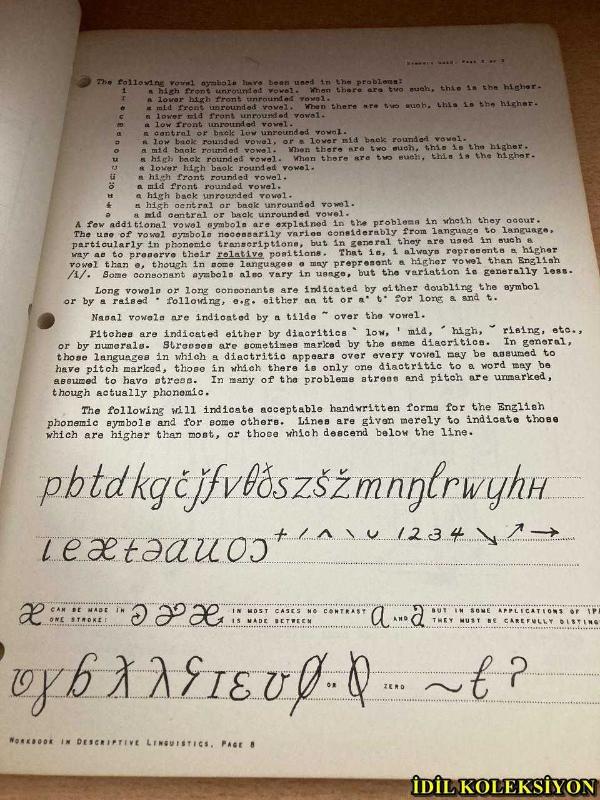 Symbols Used, Page 2 of 2
The following vowel symbols have been used in the problems:
i a high front unrounded vowel. When there are two such, this is the higher.
ɪ a lower high front unrounded vowel.
e a mid front unrounded vowel. When there are two such, this is the higher.
ɛ a lower mid front unrounded vowel.
æ a low front unrounded vowel.
a a central or back low unrounded vowel.
ɔ a low back rounded vowel, or a lower mid back rounded vowel.
o a mid back rounded vowel. When there are two such, this is the higher.
u a high back rounded vowel. When there are two such, this is the higher.
ʊ a lower high back rounded vowel.
ü a high front rounded vowel.
ö a mid front rounded vowel.
a high back unrounded vowel.
ɨ a high central or back unrounded vowel.
ə a mid central or back unrounded vowel.
A few additional vowel symbols are explained in the problems in whcih they occur.
The use of vowel symbols necessarily varies considerably from language to language,
particularly in phonemic transcriptions, but in general they are used in such a
way as to preserve their relative positions. That is, i always represents a higher
vowel than e, though in some languages e may prepresent a higher vowel than English
/i/. Some consonant symbols also vary in usage, but the variation is generally less.
Long vowels or long consonants are indicated by either doubling the symbol
or by a raised · following, e.g. either aa tt or a· t· for long a and t.
Nasal vowels are indicated by a tilde ~ over the vowel.
Pitches are indicated either by diacritics ` low, ' mid, ´ high, ˇ rising, etc.,
or by numerals. Stresses are sometimes marked by the same diacritics. In general,
those languages in which a diactritic appears over every vowel may be assumed to
have pitch marked, those in which there is only one diactritic to a word may be
assumed to have stress. In many of the problems stress and pitch are unmarked,
though actually phonemic.
The following will indicate acceptable handwritten forms for the English
phonemic symbols and for some others. Lines are given merely to indicate those
which are higher than most, or those which descend below the line.
pbtdkgčǰfvθðszšžmnŋlrwyhH
ɩeæɨəauoɔ + / ʌ \ ᴗ 1234 ↘ ↗ →
æ CAN BE MADE IN ONE STROKE: æ IN MOST CASES NO CONTRAST IS MADE BETWEEN a AND a BUT IN SOME APPLICATIONS OF THEY MUST BE CAREFULLY
ɣ ƛ λ ɪ ɛ ʊ Ø OR Ø ZERO ~ ɫ ʔ
WORKBOOK IN DESCRIPTIVE LINGUISTICS, PAGE 8
İDİL KOLEKSİYON